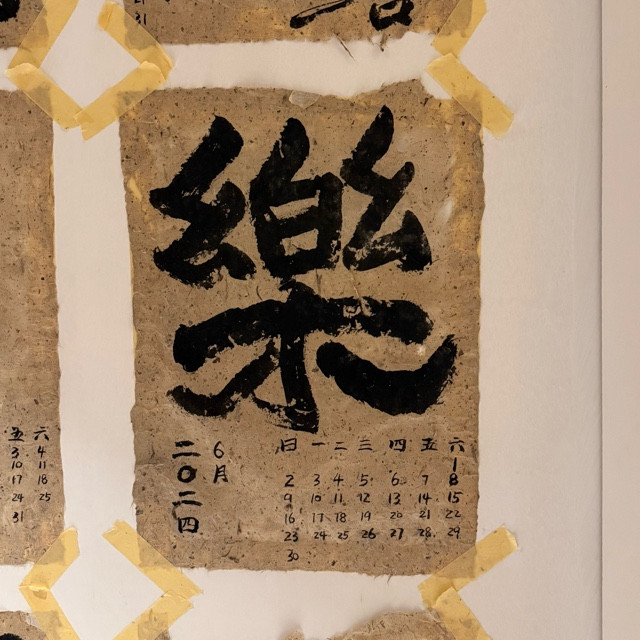 樂
二〇二四
6月
日 一 二 三 四 五 六
1
2 3 4 5 6 7 8
9 10 11 12 13 14 15
16 17 18 19 20 21 22
23 24 25 26 27 28 29
30
五 六
3 4
10 11
17 18
24 25
31
31